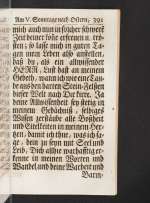 Am V. Sonntag nach Ostern. 391
mich auch nun in solcher schwere
Zeit deiner hohe erkennen u. ern-
sten; so lasse mich in guten Ta-
gen mein Leben also anstellen,
daß du, als ein allwissender
HERR, Lust daß an meinem
Gebeth, wann ich wie ein Tau-
be aus den harten Stein-Felsen
dieser Welt nach Dir kirre. Ja
deine Allwissenheit sey stetig in
meinem Gedächtniß, selbige
Wissen zerstäube alle Boßheit
und Eitelkeiten in meinem Her-
tzen, damit ich thue, was ich sa-
ge, dein zu seyn mit Seel und
Leib, Dich allhie warhafftig er-
kenne in meinen Worten und
Wandel, und deine Warheit und
Barm-